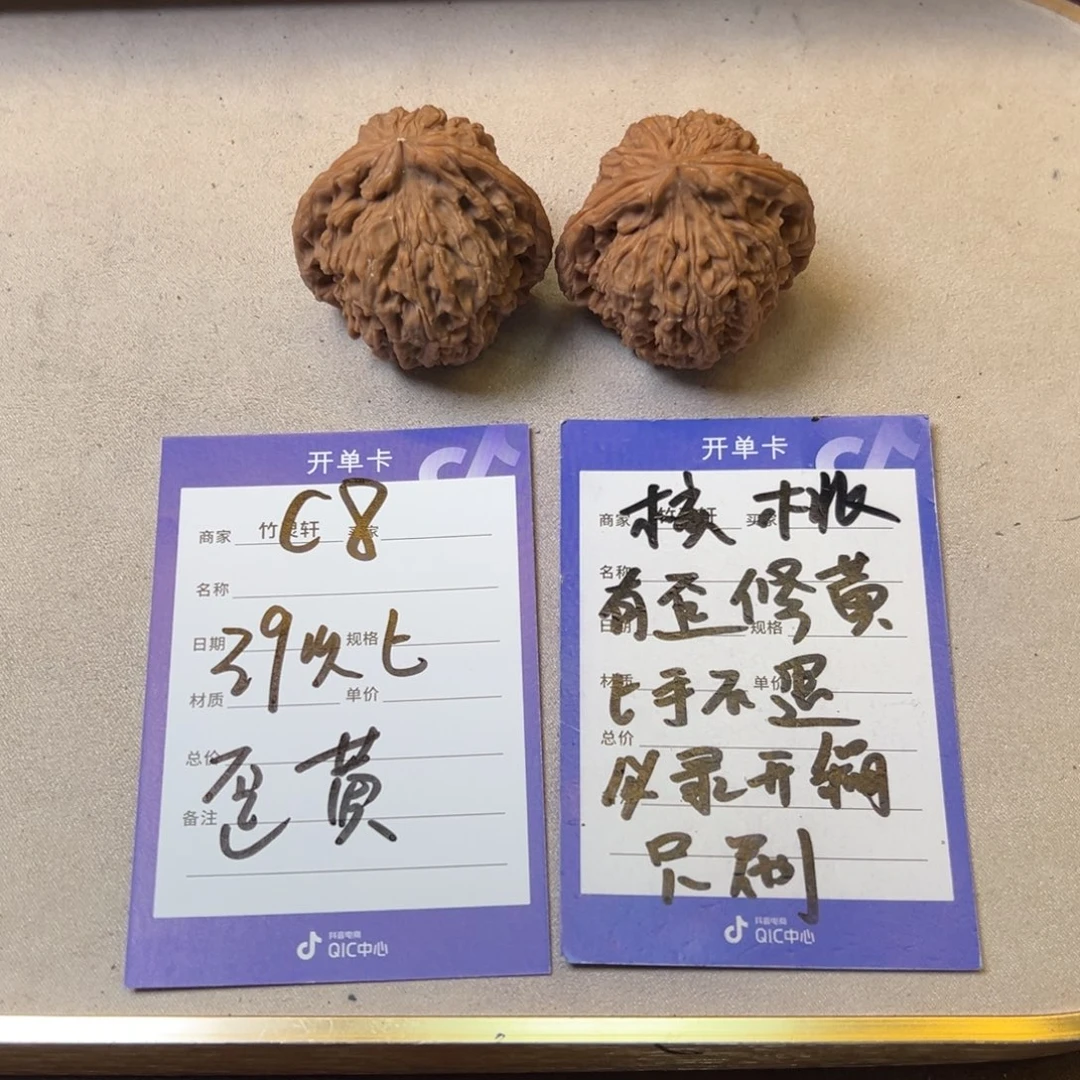 开单卡
C8
商家 竹灵轩 买家
名称
日期 规格
39次七
材质 单价
总价
歪黄
备注
抖音电商
QIC中心
开单卡
核桃
商家 竹灵轩 买家
名称
有歪修黄
日期 规格
材质 单价
七手不退
总价
必录开
只刷
抖音电商
QIC中心